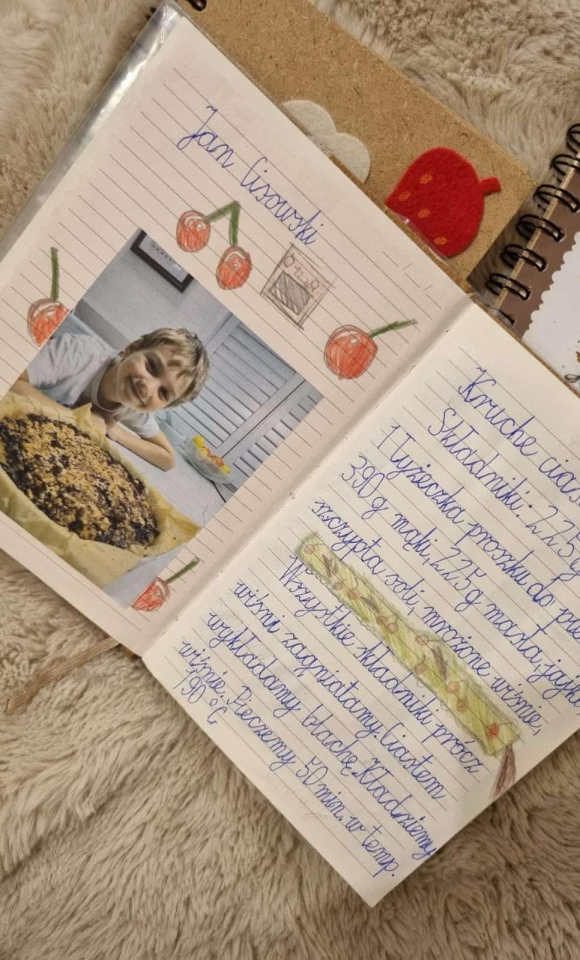 Jan Cisowski
Kruche cia
Składniki: 225g
1 łyżeczka proszku do pie
390g mąki, 225g masła, jajk
szczypta soli, mrożone wiśnie,
Wszystkie składniki prócz
wiśni zagniatamy. Ciastem
wykładamy blachę. Kładziemy
wiśnie. Pieczemy 50 min. w temp.
190°C